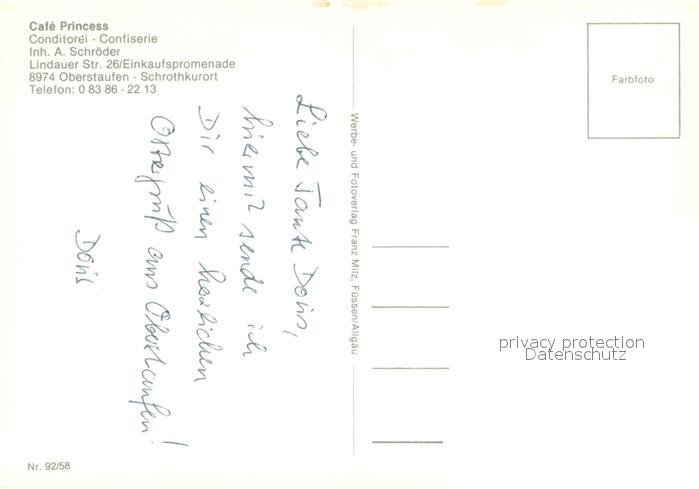 Café Princess
Conditorei - Confiserie
Inh. A. Schröder
Lindauer Str. 26/Einkaufspromenade
8974 Oberstaufen - Schrothkurort
Telefon: 0 83 86 - 22 13
Liebe Tante Doris,
hiermit sende ich
Dir einen herzlichen
Ostergruß aus Oberstaufen!
Doris
Nr. 92/58
Werbe- und Fotoverlag Franz Milz, Füssen/Allgäu
Farbfoto
privacy protection
Datenschutz